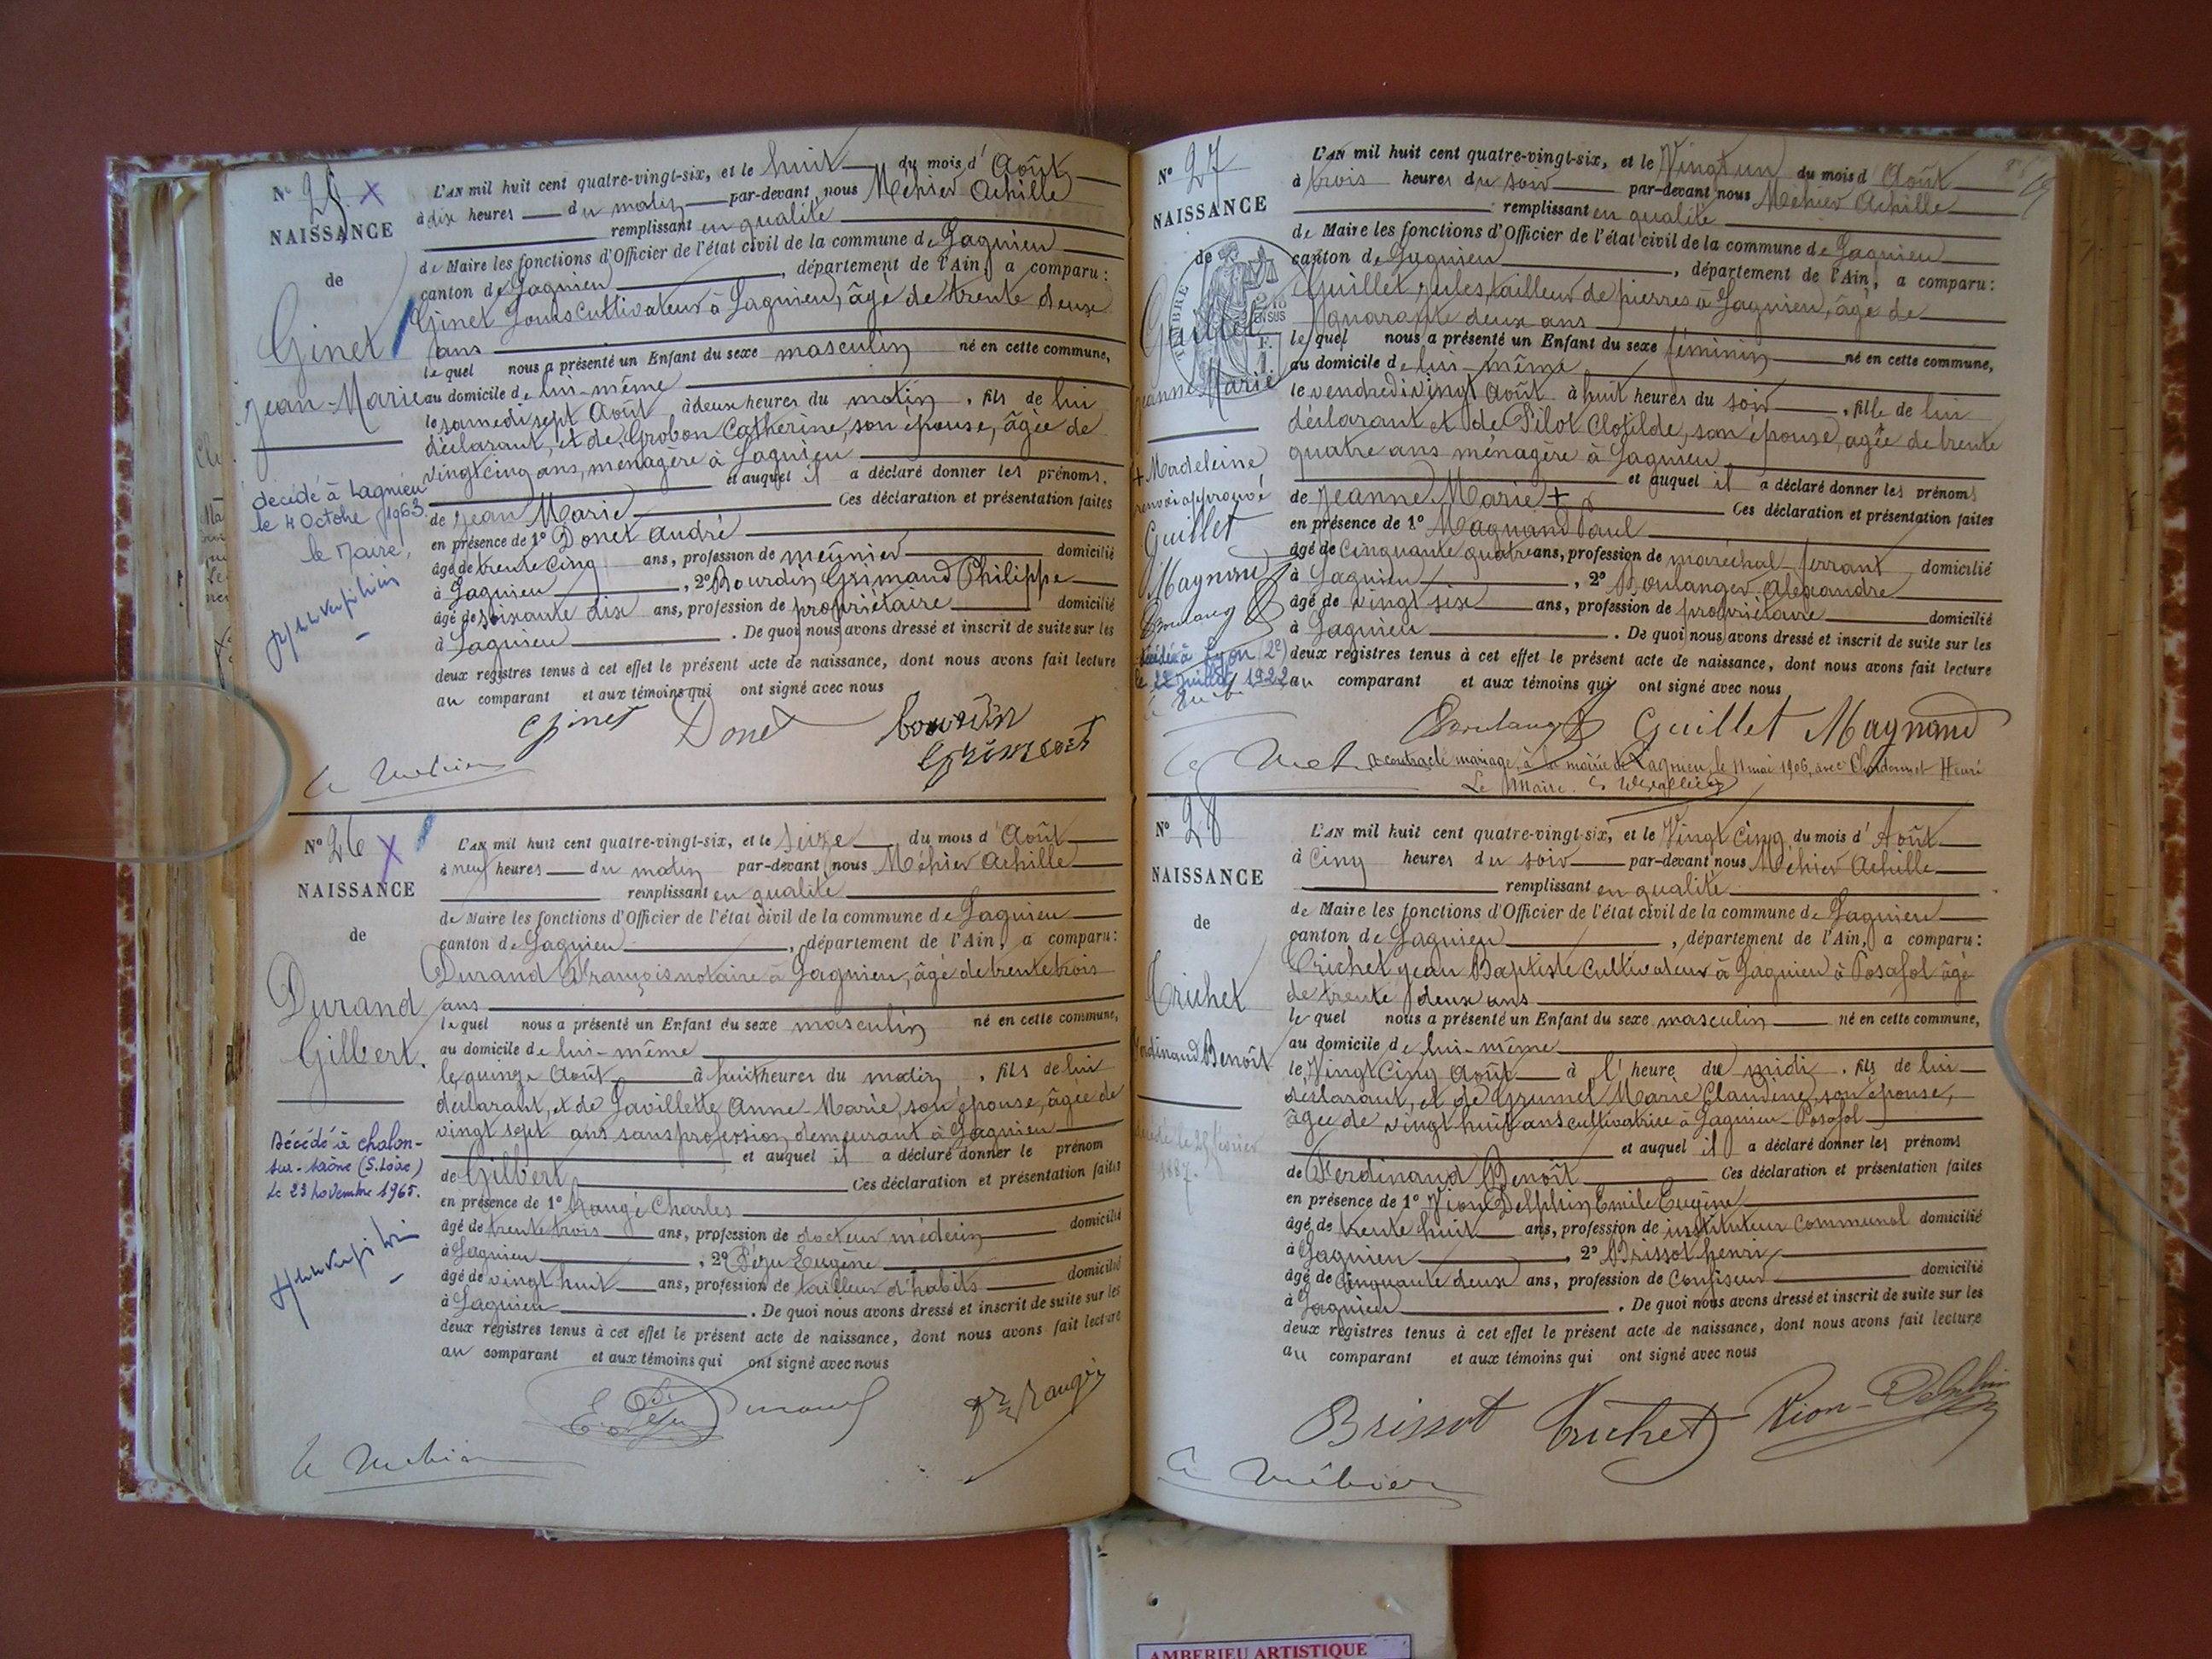 N° 25 X
NAISSANCE
de
Ginet
Jean-Marie
décédé à Lagnieu
le 4 Octobre 1963.
le Maire,
L'AN mil huit cent quatre-vingt-six, et le huit du mois d' Août
à dix heures du matin par-devant nous Méhier Achille
remplissant en qualité
de Maire les fonctions d'Officier de l'état civil de la commune de Lagnieu
canton de Lagnieu, département de l'Ain, a comparu:
Ginet Louis cultivateur à Lagnieu, âgé de trente deux
ans
lequel nous a présenté un Enfant du sexe masculin né en cette commune,
au domicile de lui-même
le samedi sept Août, à deux heures du matin, fils de lui
déclarant, et de Grobon Catherine, son épouse, âgée de
vingt cinq ans, ménagère à Lagnieu
et auquel il a déclaré donner les prénoms.
de Jean Marie Ces déclaration et présentation faites
en présence de 1° Donet André
âgé de trente cinq ans, profession de meunier domicilié
à Lagnieu, 2° Bourdin Grimaud Philippe
âgé de soixante dix ans, profession de propriétaire domicilié
à Lagnieu. De quoi nous avons dressé et inscrit de suite sur les
deux registres tenus à cet effet le présent acte de naissance, dont nous avons fait lecture
au comparant et aux témoins qui ont signé avec nous
Ginet Donet Bourdin
A Méhier
N° 26 X
NAISSANCE
de
Durand
Gilbert.
Décédé à Chalon-
sur-Saône (S. Loire)
Le 23 Novembre 1965.
L'AN mil huit cent quatre-vingt-six, et le Seize du mois d' Août
à neuf heures du matin par-devant nous Méhier Achille
remplissant en qualité
de Maire les fonctions d'Officier de l'état civil de la commune de Lagnieu
canton de Lagnieu, département de l'Ain, a comparu:
Durand François notaire à Lagnieu, âgé de trente trois
ans
lequel nous a présenté un Enfant du sexe masculin né en cette commune,
au domicile de lui-même
le quinze Août à huit heures du matin, fils de lui
déclarant, et de Lavillette Anne-Marie, son épouse, âgée de
vingt sept ans sans profession demeurant à Lagnieu
et auquel il a déclaré donner le prénom
de Gilbert Ces déclaration et présentation faites
en présence de 1° Raugé Charles
âgé de trente trois ans, profession de docteur médecin domicilié
à Lagnieu, 2° Déju Eugène
âgé de vingt huit ans, profession de tailleur d'habits domicilié
à Lagnieu. De quoi nous avons dressé et inscrit de suite sur les
deux registres tenus à cet effet le présent acte de naissance, dont nous avons fait lecture
au comparant et aux témoins qui ont signé avec nous
E. Déju Durand Dr Raugé
A Méhier
N° 27
NAISSANCE
de
Guillet
Jeanne Marie
+ Madeleine
renvoi approuvé
Guillet
Magnand
Boulang
décédée à Lyon (2e)
le 22 1922
L'AN mil huit cent quatre-vingt-six, et le Vingt un du mois d' Août
à trois heures du soir par-devant nous Méhier Achille
remplissant en qualité
de Maire les fonctions d'Officier de l'état civil de la commune de Lagnieu
canton de Lagnieu, département de l'Ain, a comparu:
Guillet Jules, tailleur de pierres à Lagnieu, âgé de
quarante deux ans
lequel nous a présenté un Enfant du sexe féminin né en cette commune,
au domicile de lui-même
le vendredi vingt Août à huit heures du soir, fille de lui
déclarant et de Pilot Clotilde, son épouse, agée de trente
quatre ans ménagère à Lagnieu
et auquel il a déclaré donner les prénoms
de Jeanne Marie + Ces déclaration et présentation faites
en présence de 1° Magnand Paul
âgé de Cinquante quatre ans, profession de maréchal-ferrant domicilié
à Lagnieu, 2° Boulanger Alexandre
âgé de vingt six ans, profession de propriétaire domicilié
à Lagnieu. De quoi nous avons dressé et inscrit de suite sur les
deux registres tenus à cet effet le présent acte de naissance, dont nous avons fait lecture
au comparant et aux témoins qui ont signé avec nous
Boulanger Guillet Magnand
A Méhier
a contracté mariage, à la mairie de Lagnieu, le 11 mai 1906, avec Henri
Le Maire
N° 28
NAISSANCE
de
Trichet
Ferdinand Benoît
décédé le 23 février
1887.
L'AN mil huit cent quatre-vingt-six, et le Vingt Cinq du mois d' Août
à Cinq heures du soir par-devant nous Méhier Achille
remplissant en qualité
de Maire les fonctions d'Officier de l'état civil de la commune de Lagnieu
canton de Lagnieu, département de l'Ain, a comparu:
Trichet Jean Baptiste Cultivateur à Lagnieu à Posafol âgé
de trente deux ans
lequel nous a présenté un Enfant du sexe masculin né en cette commune,
au domicile de lui-même
le Vingt Cinq Août à l' heure du midi, fils de lui
déclarant, et de Grumel Marie Claudine, son épouse,
âgée de vingt huit ans cultivatrice à Lagnieu-Posafol
et auquel il a déclaré donner les prénoms
de Ferdinand Benoît Ces déclaration et présentation faites
en présence de 1° Vion Delphin Emile Eugène
âgé de trente huit ans, profession de instituteur Communal domicilié
à Lagnieu, 2° Brissot henri
âgé de Cinquante deux ans, profession de Confiseur domicilié
à Lagnieu. De quoi nous avons dressé et inscrit de suite sur les
deux registres tenus à cet effet le présent acte de naissance, dont nous avons fait lecture
au comparant et aux témoins qui ont signé avec nous
Brissot Trichet Vion-Delphin
A Méhier
AMBERIEU ARTISTIQUE